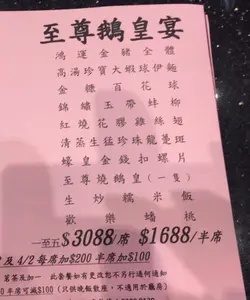 至尊鵝皇宴
鴻運金豬全體
高湯珍寶大蝦球伊麵
金糠百花球
錦繡玉帶蚌柳
紅燒花膠雞絲翅
清蒸生猛珍珠龍躉斑
蠔皇金錢扣螺片
至尊燒鵝皇(一隻)
生炒糯米飯
歡樂蟠桃
一至五$3088/席 $1688/半席
及 4/2 每席加$200 半席加$100
茗茶及加一 此套餐如有更改恕不另行通知
年席減$100 (只供晚飯散座,不適用於廳房)